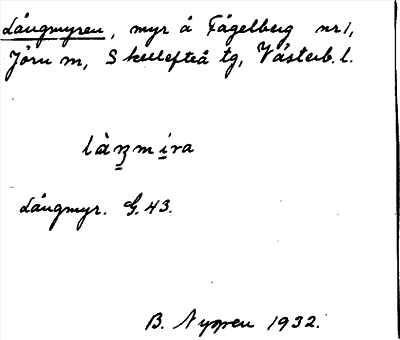 Långmyren, myr å Fågelberg nr 1,
Jörn sn, Skellefteå tg, Västerb. l.
làŋmira
Långmyr. G. 43.
B. Nygren 1932.